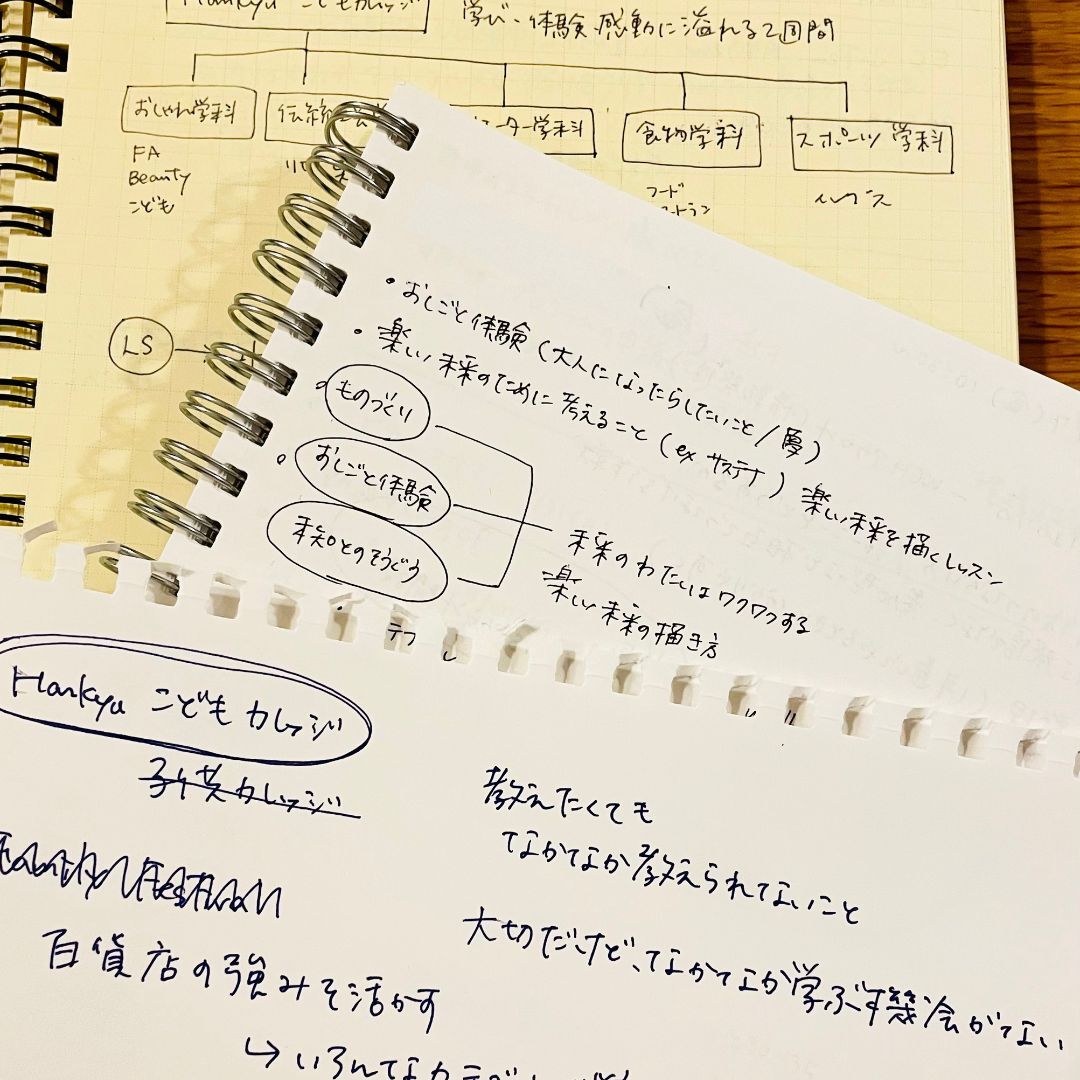 Hankyu こどもカレッジ
学び、体験、感動に溢れる2週間
おしゃれ学科
伝統
ーター学科
食物学科
スポーツ学科
FA
Beauty
こども
フード
LS
・おしごと体験(大人になったらしたいこと/夢)
・楽しい未来のために考えること(ex サステナ) 楽しい未来を描くレッスン
・ものづくり
おしごと体験
未知とのそうぐう
未来のわたしはワクワクする
楽しい未来の描き方
Hankyu こどもカレッジ
子供カレッジ
百貨店の強みを活かす
教えたくても
なかなか教えられてないこと
大切だけど、なかなか学ぶ機会がない